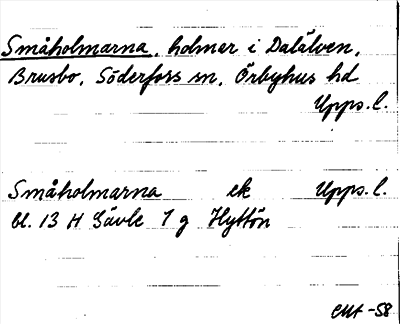 Småholmarna, holmar i Dalälven,
Brusbo, Söderfors sn, Örbyhus hd
Upps. l.
Småholmarna ek Upps. l.
bl. 13 H Gävle 7 g Hyttön
-58